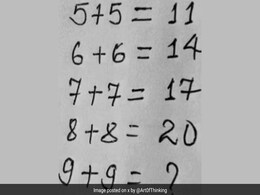 5+5 = 11
6+6 = 14
7+7 = 17
8+8 = 20
9+9 = ?
Image posted on x by @ArtOfThinking